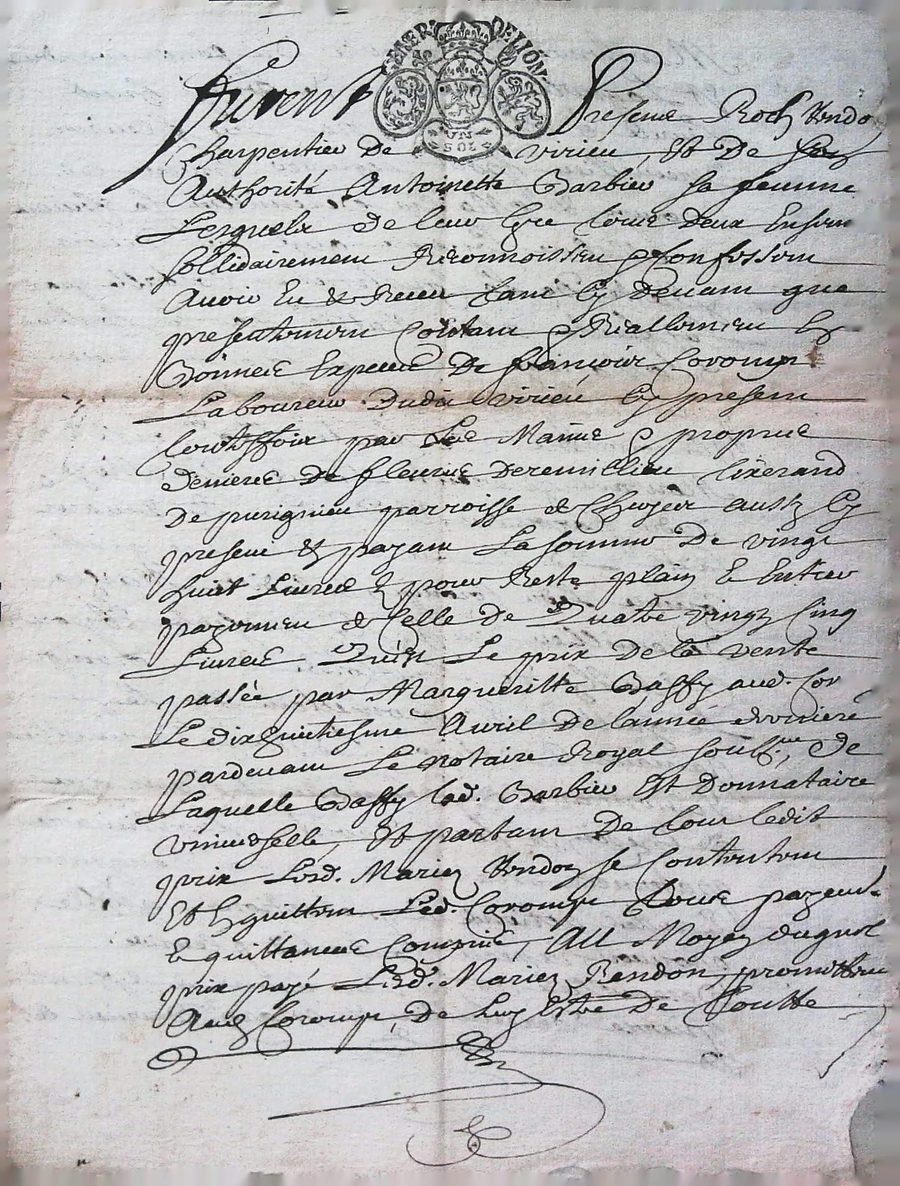 GENER. DE LION
UN SOL
furent Presens Roch Rendo
Charpentier De Virieu, Et De son
Authorité Antoinette Barbier sa femme
Lesquels de leur gré tous deux Ensem
sollidairement Reconnoissent & Confessent
Avoir Eu & Receu tant Cy Devant que
presentement Contant & Reallement En
Bonnes Especes De françois Coromp
Laboureur Dudit Virieu Cy present
toutesfois par les Mains & propres
deniers De fleurie Deremillieu tixerand
De purignieu parroisse de Chuyer aussy Cy
present & payant La somme De vingt
huit Livres Et pour Reste plain & Entier
payement de Celle de Quatre vingtz Cinq
Livres Que Le prix de la vente
passée par Margueritte Baffy aud. Cor
Le dix huitiesme Avril De lannée derniere
pardevant Le notaire Royal soubs.ne, De
Laquelle Baffy lad. Barbier Est Donnataire
vniverselle, Et partant De tout ledit
prix Lesd. Mariez Rendon se Contentent
Et En quittent Led. Coromp toutes payemt.
& quittances Comprins, Au Moyen duquel
prix payé Lesd. Mariez Rendon, promettent
Aud Coromp, De luy Estre De Toutte